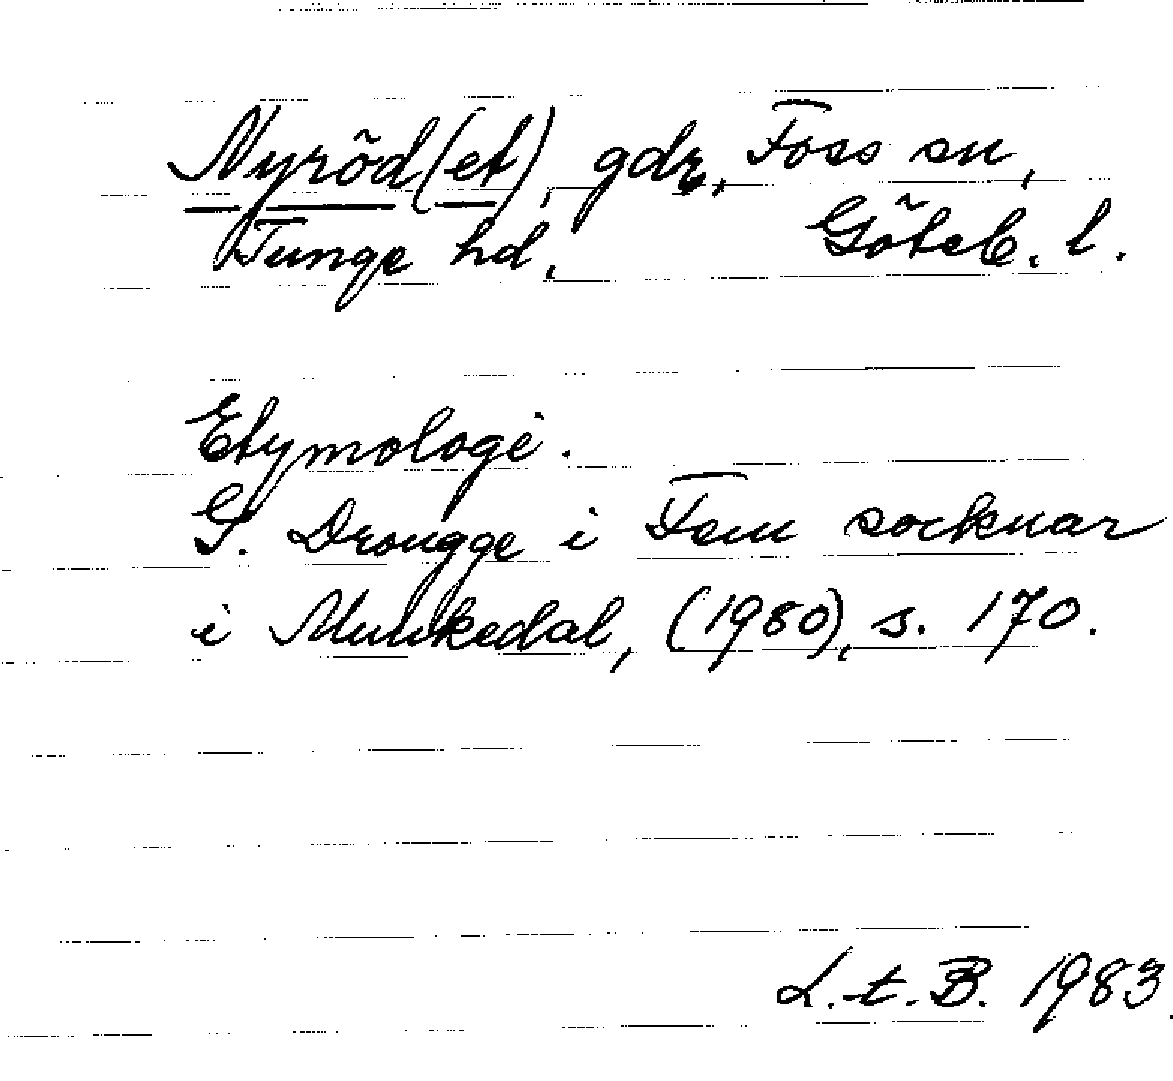 Nyröd(et), gdr, Foss sn,
Tunge hd. Göteb. l.
Etymologi.
G. Drougge i Fem socknar
i Munkedal, (1980), s. 170.
L.t.B. 1983.